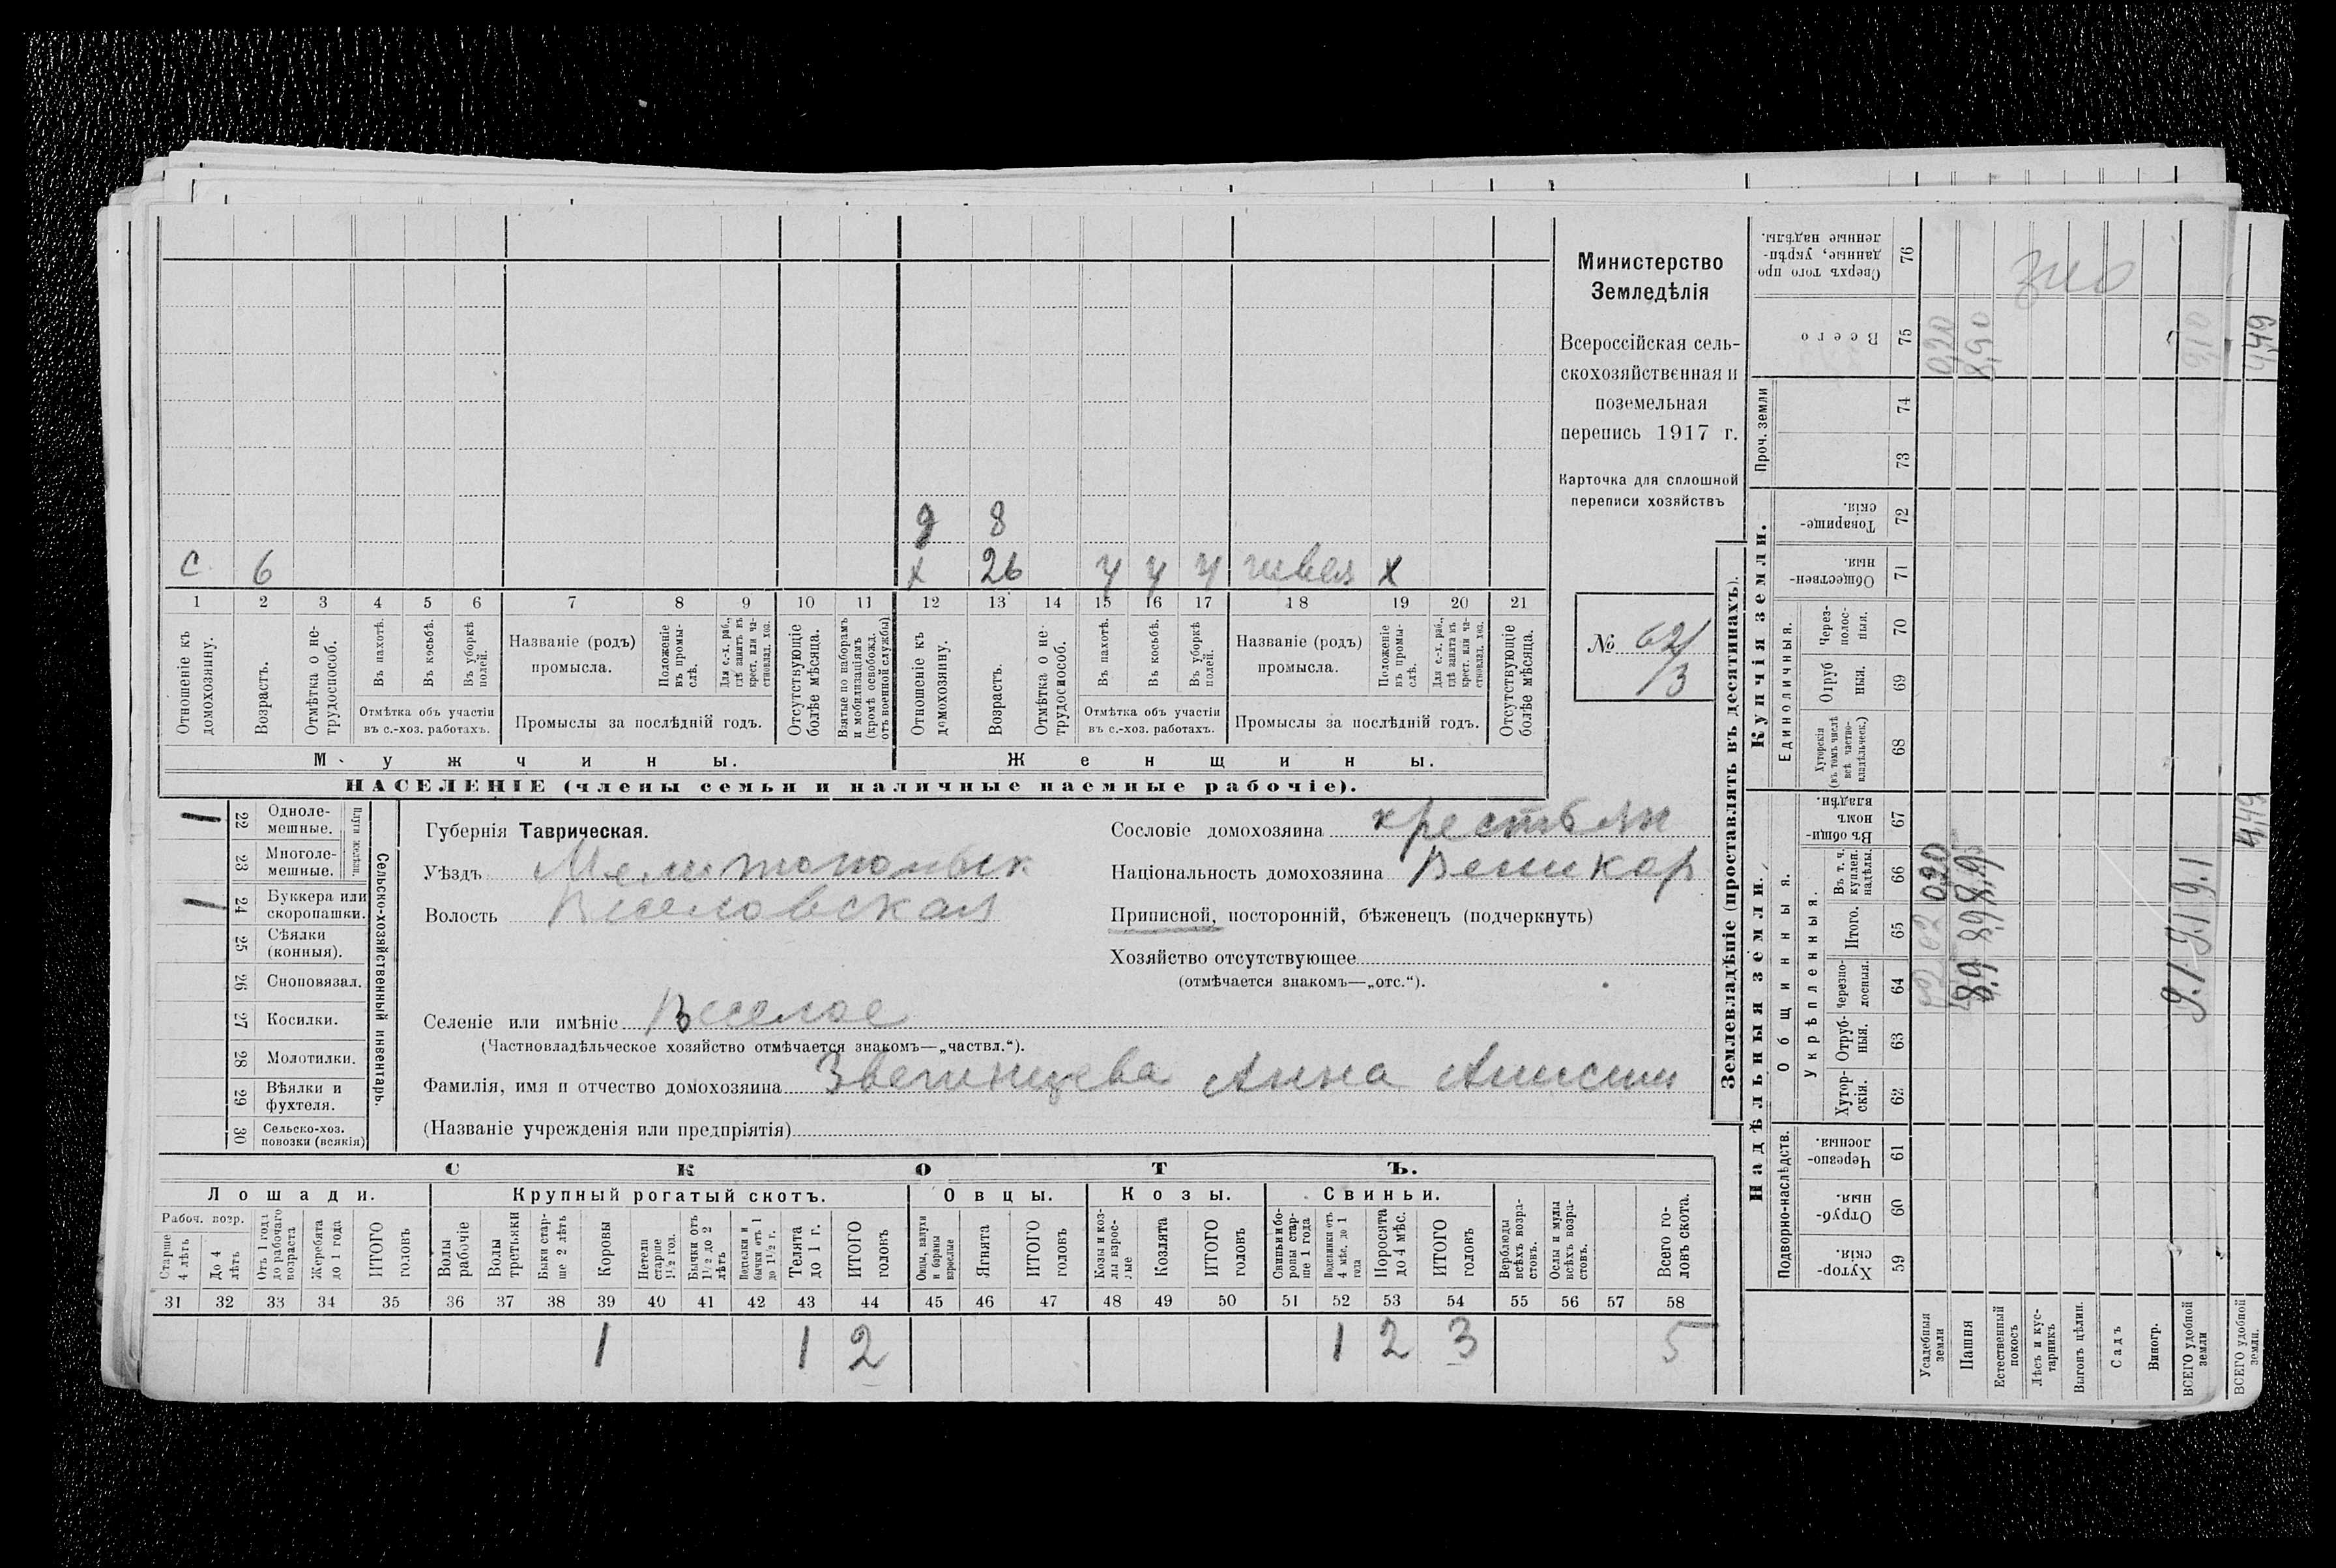 с 6 д 8
х 26 ч ч ч швея х
1 2 3 4 5 6 7 8 9 10 11 12 13 14 15 16 17 18 19 20 21
Отношеніе къ домохозяину.
Возрастъ.
Отмѣтка о нетрудоспособ.
Въ пахотѣ.
Въ косьбѣ.
Въ уборкѣ полей.
Отмѣтка объ участіи
въ с.-хоз. работахъ.
Названіе (родъ)
промысла.
Положеніе въ промыслѣ.
Для с.-х. раб., гдѣ занятъ въ крест. или частновлад. хоз.
Промыслы за послѣдній годъ.
Отсутствующіе болѣе мѣсяца.
Взятые по наборамъ и мобилизаціямъ (кромѣ освобожд. отъ военной службы)
Отношеніе къ домохозяину.
Возрастъ.
Отмѣтка о нетрудоспособ.
Въ пахотѣ.
Въ косьбѣ.
Въ уборкѣ полей.
Отмѣтка объ участіи
въ с.-хоз. работахъ.
Названіе (родъ)
промысла.
Положеніе въ промыслѣ.
Для с.-х. раб., гдѣ занятъ въ крест. или частновлад. хоз.
Промыслы за послѣдній годъ.
Отсутствующіе болѣе мѣсяца.
Мужчины.
Женщины.
НАСЕЛЕНІЕ (члены семьи и наличные наемные рабочіе).
Министерство
Земледѣлія
Всероссійская сель-
скохозяйственная и
поземельная
перепись 1917 г.
Карточка для сплошной
переписи хозяйствъ
№ 62/3
Сельско-хозяйственный инвентарь.
Плуги желѣзн.
1 22 Одноле-
мешные.
23 Многоле-
мешные.
1 24 Буккера или
скоропашки.
25 Сѣялки
(конныя).
26 Сноповязал.
27 Косилки.
28 Молотилки.
29 Вѣялки и
фухтеля.
30 Сельско-хоз.
повозки (всякія)
Губернія Таврическая.
Уѣздъ Мелитопольск
Волость Веселовская
Селеніе или имѣніе Веселое
(Частновладѣльческое хозяйство отмѣчается знакомъ—„частвл.“).
Фамилія, имя и отчество домохозяина Звегинцева Анна Анисим
(Названіе учрежденія или предпріятія)
Сословіе домохозяина крестьян
Національность домохозяина Великор
Приписной, посторонній, бѣженецъ (подчеркнуть)
Хозяйство отсутствующее
(отмѣчается знакомъ—„отс.“).
СКОТЪ.
Лошади.
Крупный рогатый скотъ.
Овцы.
Козы.
Свиньи.
Рабоч. возр.
Старше 4 лѣтъ
До 4 лѣтъ
Отъ 1 года до рабочаго возраста
Жеребята до 1 года
ИТОГО головъ
Волы рабочіе
Волы третьяки
Быки старше 2 лѣтъ
Коровы
Нетели старше 1½ год.
Бычки отъ 1½ до 2 лѣтъ
Подтелки и бычки отъ 1 до 1½ г.
Телята до 1 г.
ИТОГО головъ
Овцы, валухи и бараны взрослые
Ягнята
ИТОГО головъ
Козы и козлы взрослые
Козлята
ИТОГО головъ
Свиньи и боровы старше 1 года
Подсвинки отъ 4 мѣс. до 1 года
Поросята до 4 мѣс.
ИТОГО головъ
Верблюды всѣхъ возрастовъ.
Ослы и мулы всѣхъ возрастовъ.
Всего головъ скота.
31 32 33 34 35 36 37 38 39 40 41 42 43 44 45 46 47 48 49 50 51 52 53 54 55 56 57 58
1 1 2 1 2 3 5
Землевладѣніе (проставлять въ десятинахъ).
Надѣльныя земли.
Купчія земли.
Проч. земли
Подворно-наслѣдств.
Общинныя.
Укрѣпленныя.
Единоличныя.
Сверхъ того проданные, укрѣпленные надѣлы. 76
Всего 75 0,20 8,90 9,10 4,49
74
73
Товарищескія. 72
Общественныя. 71
Черезполосныя. 70
Отрубныя. 69
Хуторскія (въ томъ числѣ всѣ частновладѣльческ.) 68
Въ общинномъ владѣн. 67 4,49
Въ т. ч. куплен. надѣлы. 66 0,20 8,9 9.1
Итого. 65 02 8,9 9.1
Черезполосныя. 64 02 8.9 9.1
Отрубныя. 63
Хуторскія. 62
Черезполосныя. 61
Отрубныя. 60
Хуторскія. 59
Усадебныя земли
Пашня
Естественный покосъ
Лѣсъ и кустарникъ
Выгонъ цѣлин.
Садъ
Виногр.
ВСЕГО удобной земли
ВСЕГО удобной земли.